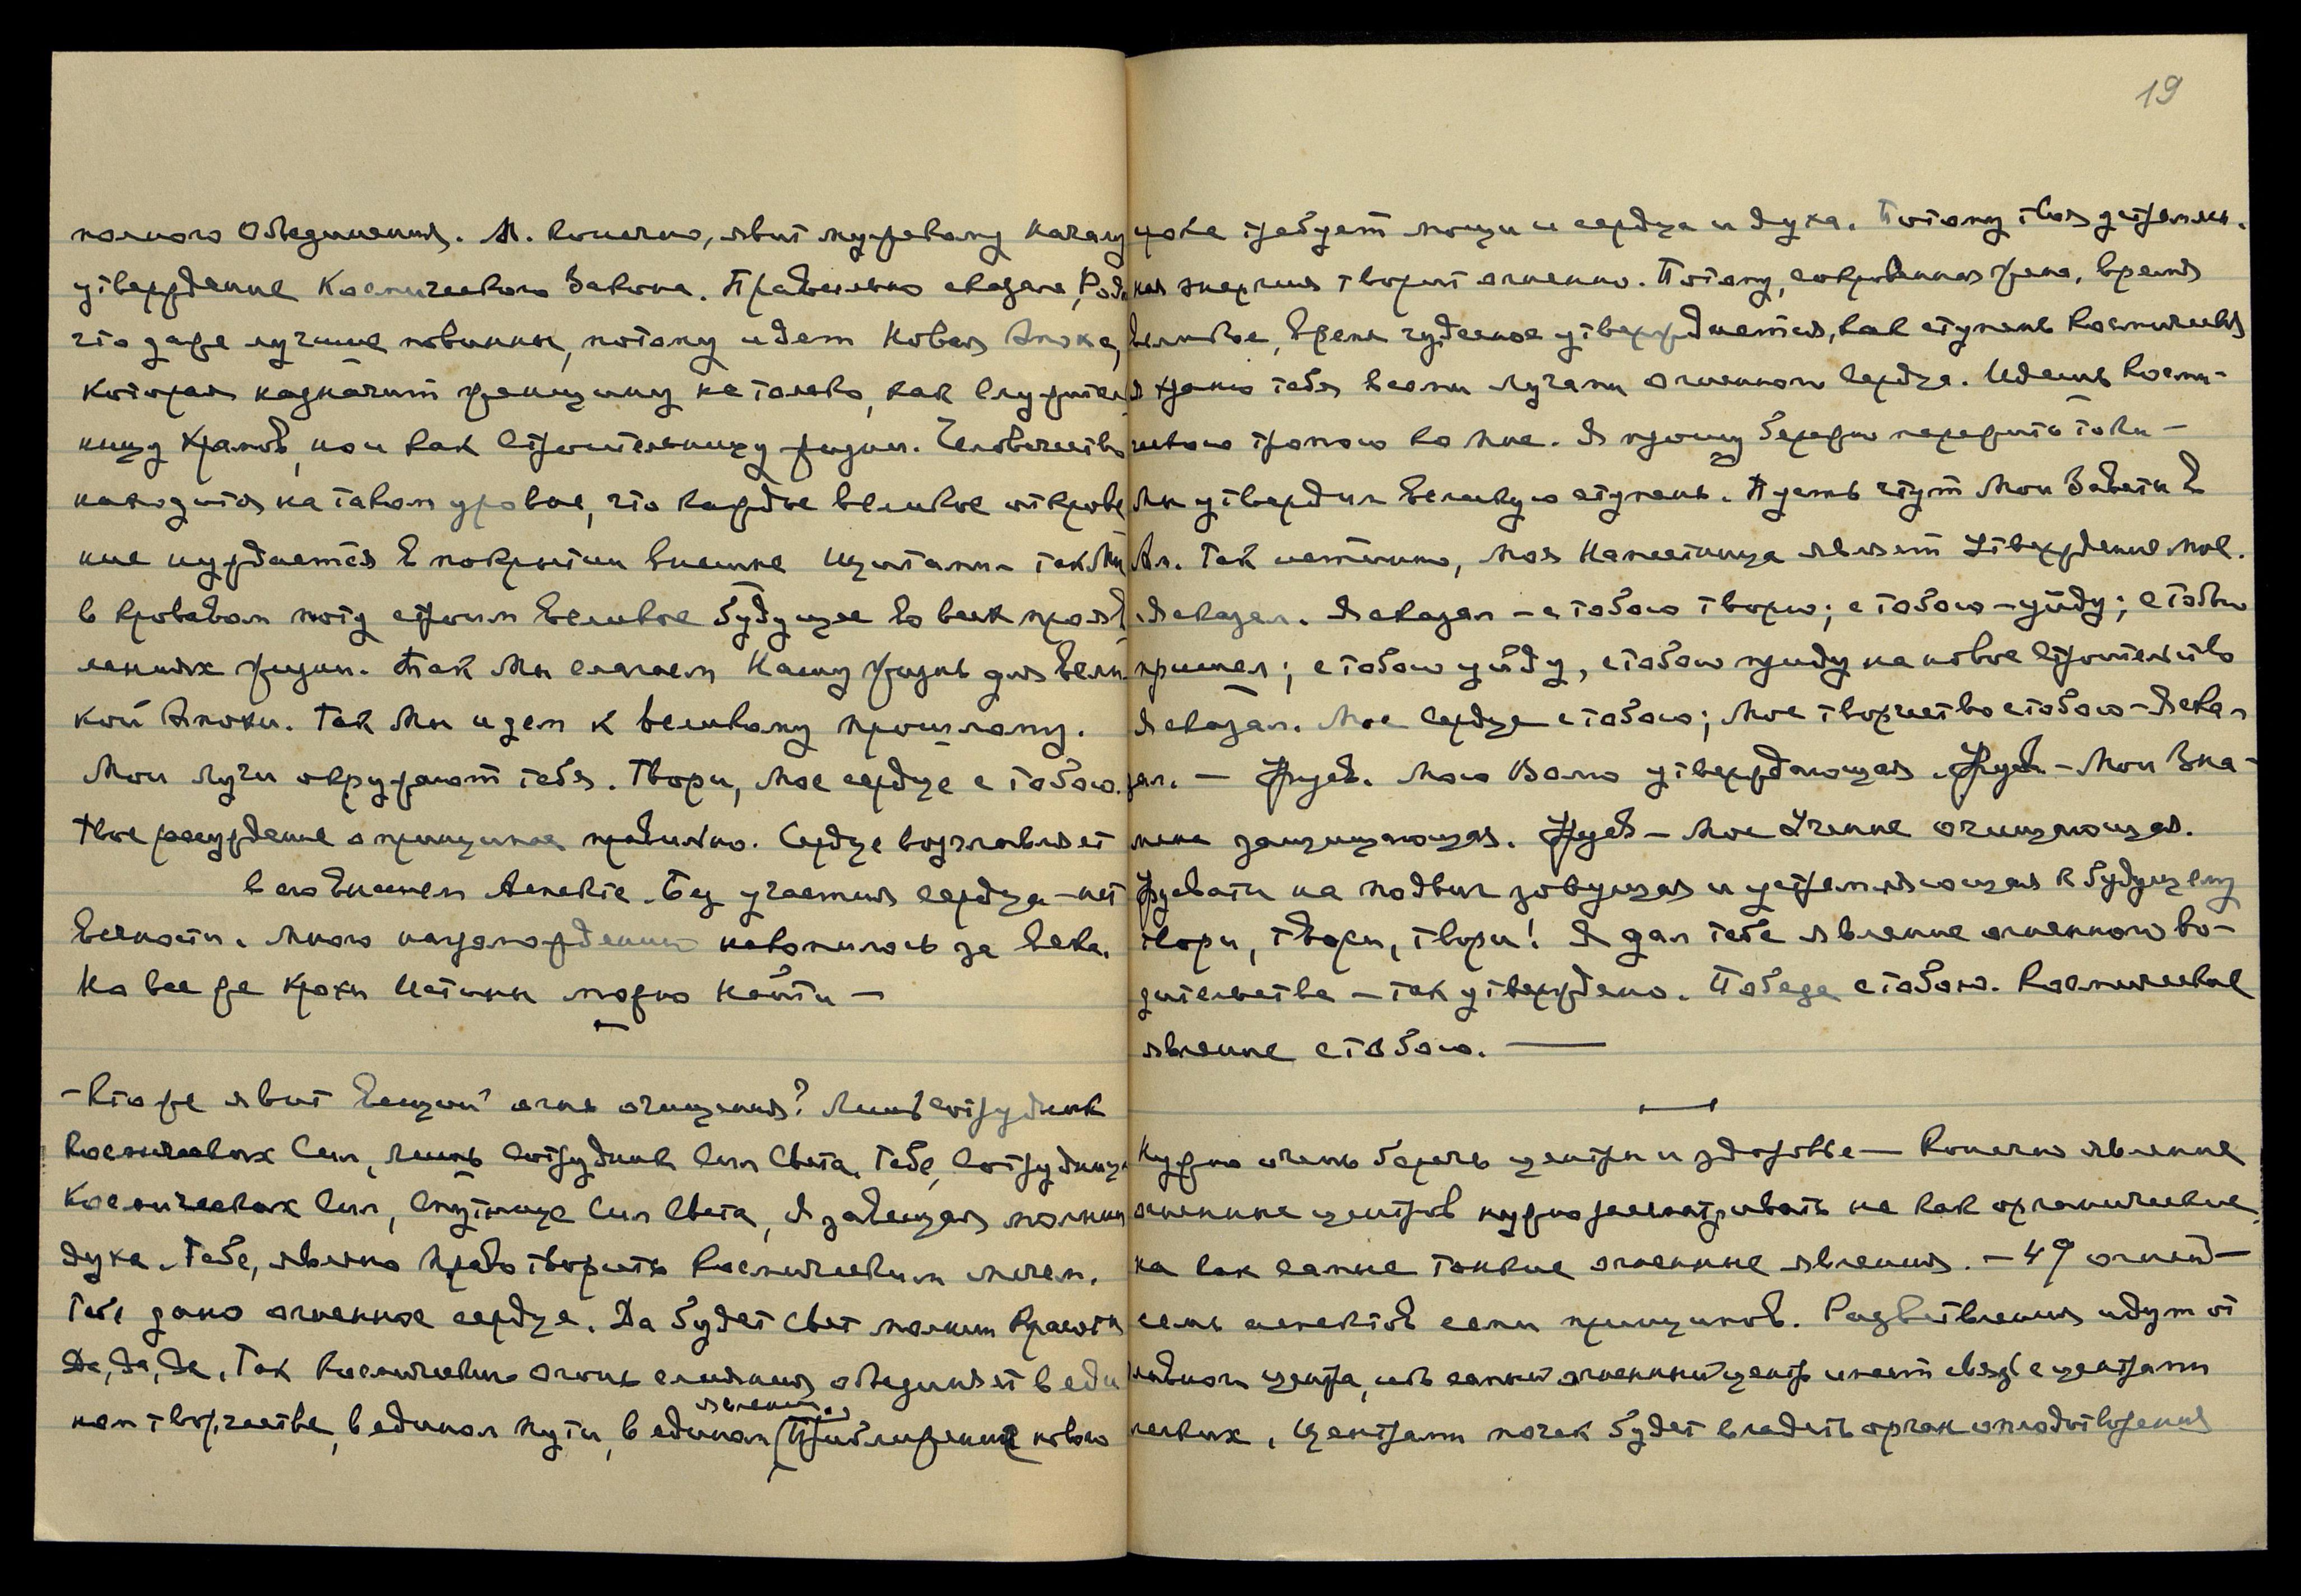 полного Объединения. М. конечно, явит мужскому началу
утверждение Космического Закона. Правильно сказала, Родн
что даже лучшие повинны, потому идет Новая Эпоха,
которая назначит женщину не только, как Служитель
ницу Храмов, но и как Строительницу жизни. Человечество
находится на таком уровне, что каждое великое откровe
ние нуждается в покрытии внешне Щитами. Так Мы
в кровавом поту строим великое будущее во всех прояв
лениях жизни. Так Мы слагаем Нашу жизнь для Вели-
кой Эпохи. Так Мы идем к великому прошлому.
Мои Лучи окружают тебя. Твори, Мое сердце с тобою.
Твое рассуждение о принципах правильно. Сердце возглавляет
в его Высшем Аспекте. Без участия сердца – нет
Вечности. Много нагромождений накопилось за века.
Но все же крохи Истины можно найти —
– Кто же явит Вещий огнь очищения? Лишь сотрудник
Космических Сил, лишь сотрудник Сил Света. Тебе, сотрудница
Космических Сил, Спутница Сил Света, Я завещаю
духа. Тебе, явлено право творить Космическим мечем.
Тебе дано огненное сердце. Да будет свет Красоты
Да, да, да. Так Космический Огонь слияния объединяет в еди
явлении
ном творчестве, в едином пути, в едином (Приближении) нового
19
требует мощи и сердца и духа. Потому твоя устремлен.
ная энергия творит огненно. Потому, сокровенная жена, время
великое, время чудесное утверждается, как ступень Космическая
Я храню тебя всеми лучами Огненного Сердца. Идешь Косми-
ческою тропою ко Мне. Я прошу бережно передать токи –
Мы утвердим Великую ступень. Пусть чтут Мои Заветы в
Ам. Так истинно, Моя Наместница являет Утверждение Мое.
Я сказал. Я сказал – с тобою творю; с тобою – уйду; с тобою
пришел; с тобою уйду, с тобою приду на новое строительство
Я сказал. Мое Сердце с тобою; Мое творчество с тобою – Я ска-
зал. — Мою Волю утверждающая. – Мои Зна-
мена защищающая. – Мое Учение очищающая.
на подвиг зовущая и устремляющая к будущему
твори, твори, твори! Я дал тебе явление огненного во-
дительства – так утверждено. Победа с тобою. Космическое
явление с тобою. —
Нужно очень беречь центры и здоровье — Конечно явление
огненные центров нужно рассматривать не как органические,
но как самые тонкие огненные явления. – 49 огней –
семь аспектов семи принципов. Разветвления идут от
главного центра, ибо самый огненный центр имеет связь с центрами
легких, центрами почек будет владеть орган оплодотворения